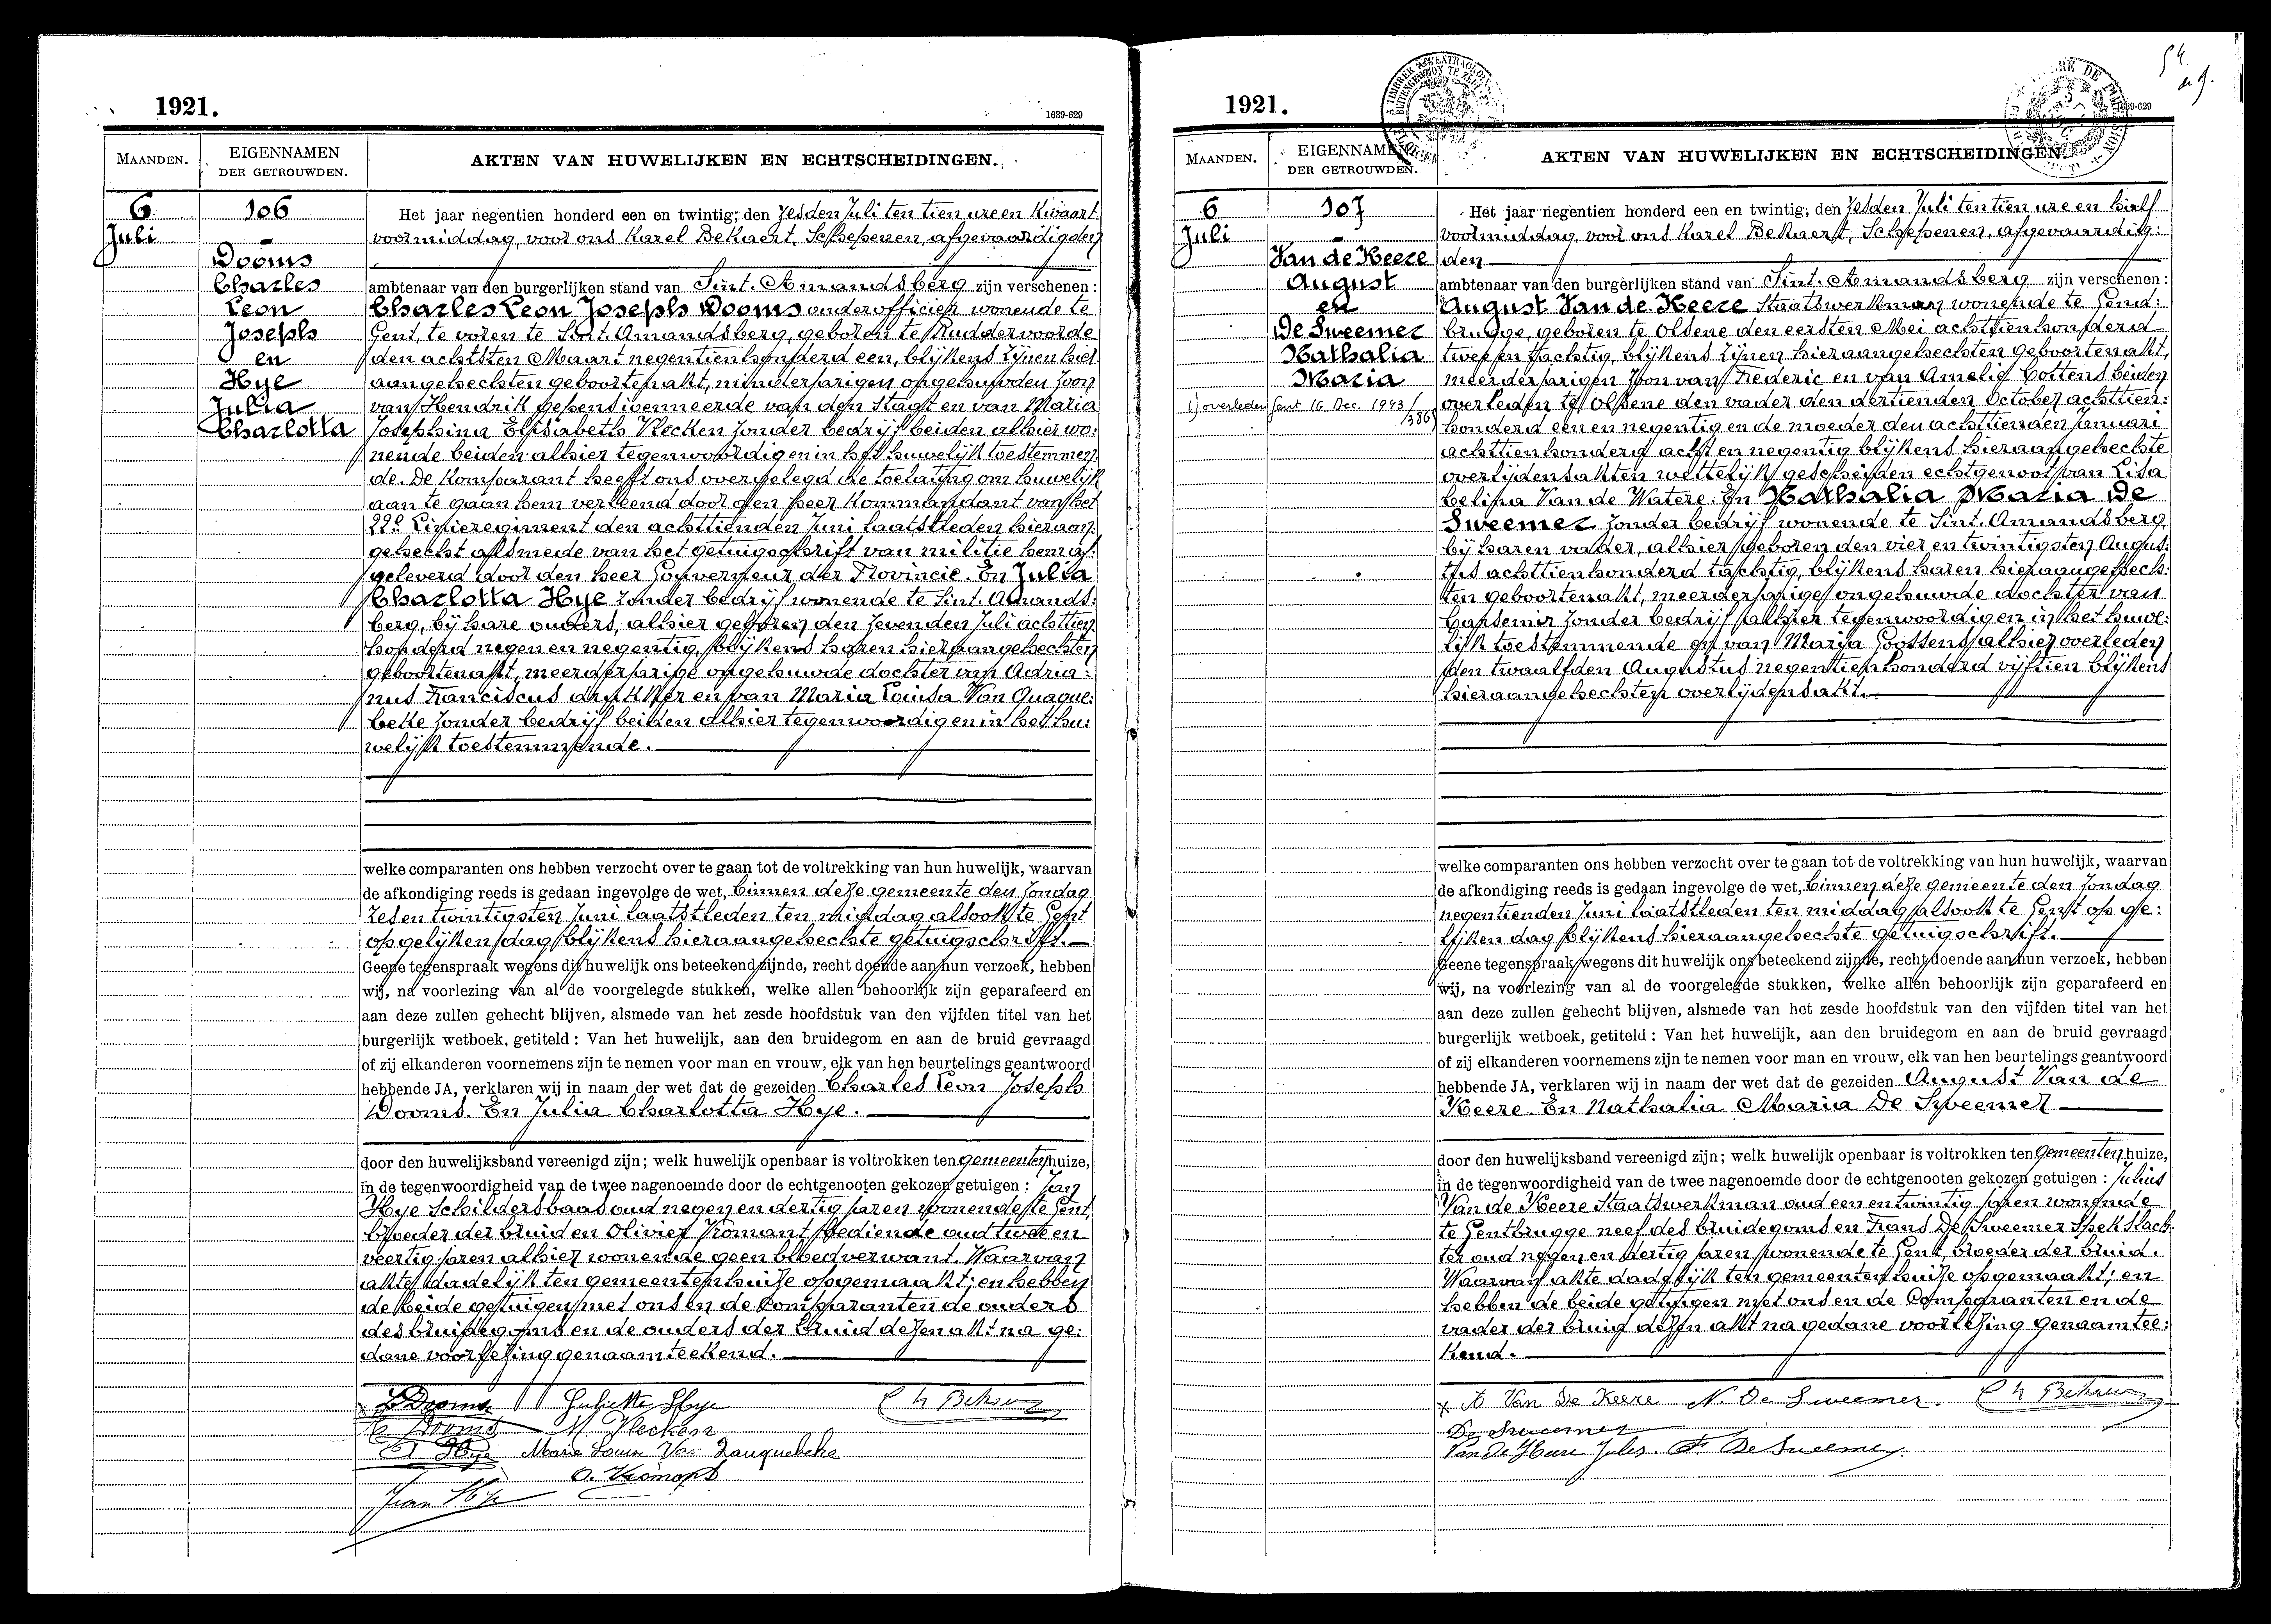 1921.
1639-629
MAANDEN.
EIGENNAMEN
DER GETROUWDEN.
AKTEN VAN HUWELIJKEN EN ECHTSCHEIDINGEN.
6
Juli
106
Dooms
Charles
Leon
Joseph
en
Hye
Julia
Charlotta
Het jaar negentien honderd een en twintig; den zesden Juli ten tien ure en kwaart
voormiddag, voor ons Karel Bekaert, Schepenen, afgevaardigden
ambtenaar van den burgerlijken stand van Sint-Amandsberg zijn verschenen :
Charles Leon Joseph Dooms onderofficier wonende te
Gent, te voren te Sint-Amandsberg, geboren te Ruddervoorde
den achtsten Maart negentienhonderd een, blijkens zijnen hier
aangehechten geboortenakt, minderjarigen ongehuwden zoon
van Hendrik gepensioenneerde van den staat en van Maria
Josephina Elisabeth Vlecken zonder bedrijf beiden alhier wo:
nende beiden alhier tegenwoordig en in het huwelijk toestemmen:
de. De Komparant heeft ons overgelegd de toelating om huwelijk
aan te gaan hem verleend door den heer Kommandant van het
22e Linieregiment den achttienden Juni laatstleden hieraan:
gehecht alsmede van het getuigschrift van militie hem af:
geleverd door den heer Gouverneur der Provincie. En Julia
Charlotta Hye zonder bedrijf wonende te Sint-Amands:
berg, bij hare ouders, alhier geboren den zevenden Juli achttien
honderd negen en negentig, blijkens haren hieraangehechten
geboortenakt, meerderjarige ongehuwde dochter van Adria:
nus Franciscus drukker en van Maria Louisa Van Quaque:
beke zonder bedrijf beiden alhier tegenwoordig en in het hu:
welijk toestemmende.
welke comparanten ons hebben verzocht over te gaan tot de voltrekking van hun huwelijk, waarvan
de afkondiging reeds is gedaan ingevolge de wet, binnen deze gemeente den zondag
zes en twintigsten Juni laatstleden ten middag alsook te Gent
op gelijken dag blijkens hieraangehechte getuigschrift.
Geene tegenspraak wegens dit huwelijk ons beteekend zijnde, recht doende aan hun verzoek, hebben
wij, na voorlezing van al de voorgelegde stukken, welke allen behoorlijk zijn geparafeerd en
aan deze zullen gehecht blijven, alsmede van het zesde hoofdstuk van den vijfden titel van het
burgerlijk wetboek, getiteld : Van het huwelijk, aan den bruidegom en aan de bruid gevraagd
of zij elkanderen voornemens zijn te nemen voor man en vrouw, elk van hen beurtelings geantwoord
hebbende JA, verklaren wij in naam der wet dat de gezeiden Charles Leon Joseph
Dooms. En Julia Charlotta Hye.
door den huwelijksband vereenigd zijn; welk huwelijk openbaar is voltrokken ten gemeentenhuize,
in de tegenwoordigheid van de twee nagenoemde door de echtgenooten gekozen getuigen : Jan
Hye Schildersbaas oud negen en dertig jaren wonende te Gent,
broeder der bruid en Olivier Vromant bediende oud twee en
veertig jaren alhier wonende geen bloedverwant. Waarvan
akte dadelijk ten gemeentenhuize opgemaakt; en hebben
de beide getuigen met ons en de Comparanten de ouders
des bruidegoms en de ouders der bruid dezen akt na ge:
dane voorlezing genaamteekend.
Dooms Juliette Hye Ch Bekaert
C. Dooms M. Vlecken
A Hye Marie Louise Van Quaquebeke
O. Vromant
Jean Hye
1921.
1639-629
MAANDEN.
EIGENNAMEN
DER GETROUWDEN.
AKTEN VAN HUWELIJKEN EN ECHTSCHEIDINGEN.
6
Juli
107
Van de Keere
August
en
De Sweemer
Nathalia
Maria
1) overleden Gent 16 Dec. 1943
Het jaar negentien honderd een en twintig; den zesden Juli ten tien ure en half
voormiddag, voor ons Karel Bekaert, Schepenen, afgevaardig:
den
ambtenaar van den burgerlijken stand van Sint-Amandsberg zijn verschenen :
August Van de Keere Staatswerkman wonende te Gend:
brugge, geboren te Olsene den eersten Mei achttienhonderd
twee en tachtig, blijkens zijnen hieraangehechten geboortenakt,
meerderjarigen zoon van Frederic en van Amelie Cottens beiden
overleden te Olsene den vader den dertienden October achttien:
honderd een en negentig en de moeder den achttienden Januari
achttienhonderd acht en negentig blijkens hieraangehechte
overlijdensakten wettelijk gescheiden echtgenoot van Lisa
Celina Van de Watere. En Nathalia Maria De
Sweemer zonder bedrijf wonende te Sint-Amandsberg,
bij haren vader, alhier geboren den vier en twintigsten Augus:
tus achttienhonderd tachtig, blijkens haren hieraangehech:
ten geboortenakt, meerderjarige ongehuwde dochter van
Carsemir zonder bedrijf alhier tegenwoordig en in het huwe:
lijk toestemmende en van Maria Goossens alhier overleden
den twaalfden Augustus negentienhonderd vijftien blijkens
hieraangehechten overlijdensakt.
welke comparanten ons hebben verzocht over te gaan tot de voltrekking van hun huwelijk, waarvan
de afkondiging reeds is gedaan ingevolge de wet, binnen deze gemeente den zondag
negentienden Juni laatstleden ten middag alsook te Gent op ge:
lijken dag blijkens hieraangehechte getuigschrift.
Geene tegenspraak wegens dit huwelijk ons beteekend zijnde, recht doende aan hun verzoek, hebben
wij, na voorlezing van al de voorgelegde stukken, welke allen behoorlijk zijn geparafeerd en
aan deze zullen gehecht blijven, alsmede van het zesde hoofdstuk van den vijfden titel van het
burgerlijk wetboek, getiteld : Van het huwelijk, aan den bruidegom en aan de bruid gevraagd
of zij elkanderen voornemens zijn te nemen voor man en vrouw, elk van hen beurtelings geantwoord
hebbende JA, verklaren wij in naam der wet dat de gezeiden August Van de
Keere En Nathalia Maria De Sweemer
door den huwelijksband vereenigd zijn; welk huwelijk openbaar is voltrokken ten Gemeentenhuize,
in de tegenwoordigheid van de twee nagenoemde door de echtgenooten gekozen getuigen : Julius
Van de Keere Staatswerkman oud een en twintig jaren wonende
te Gentbrugge neef des bruidegoms en Frans De Sweemer Spekslach
ter oud negen en dertig jaren wonende te Gent, broeder der bruid.
Waarvan akte dadelijk ten gemeentenhuize opgemaakt; en
hebben de beide getuigen met ons en de Comparanten en de
vader der bruid dezen akt na gedane voorlezing genaamtee:
kend.
A Van De Keere N. De Sweemer. Ch Bekaert
De Sweemer
Van de Keere Jules. F. De Sweemer.